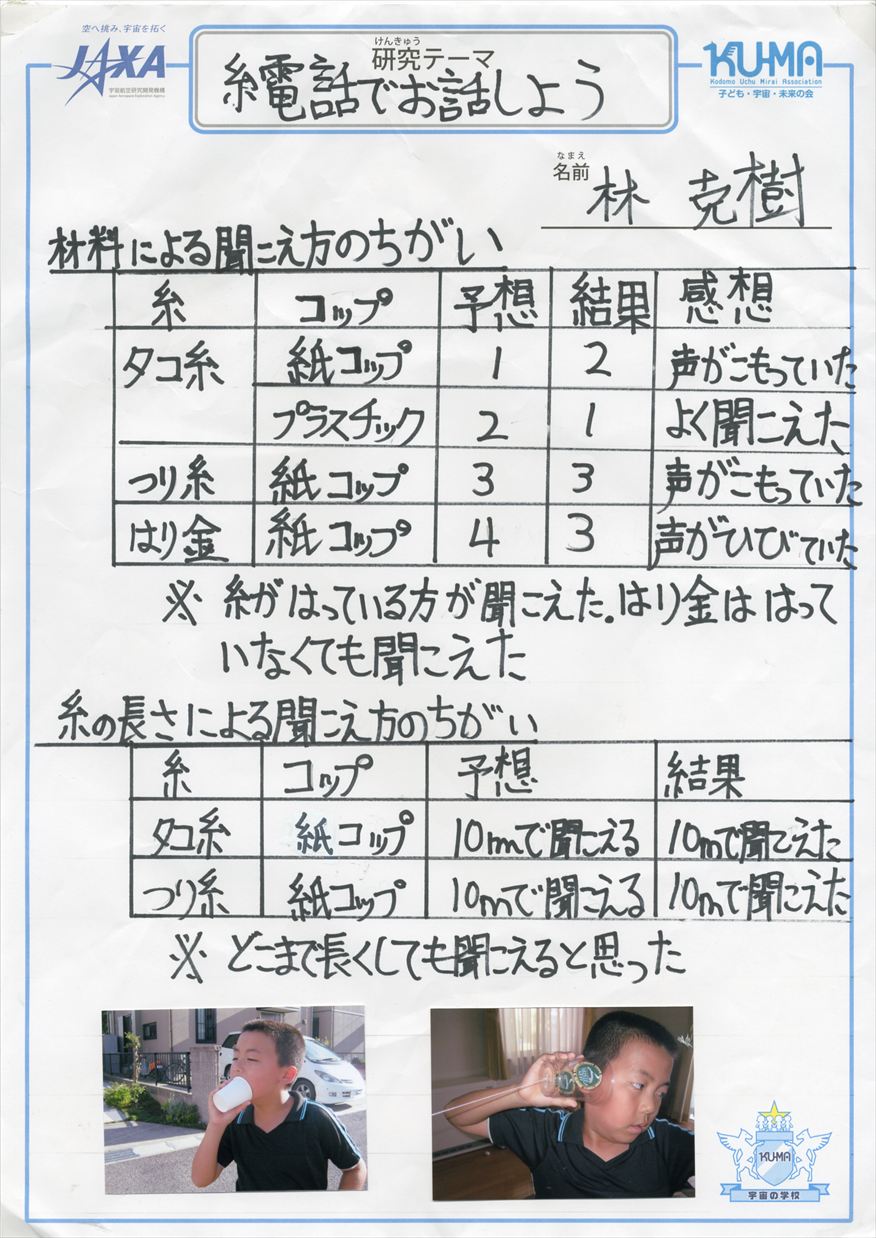 空へ挑み、宇宙を拓く
JAXA
宇宙航空研究開発機構
Japan Aerospace Exploration Agency
けんきゅう
研究テーマ
糸電話でお話しよう
KU-MA
Kodomo Uchu Mirai Association
子ども・宇宙・未来の会
なまえ
名前 林 克樹
材料による聞こえ方のちがい
糸 コップ 予想 結果 感想
タコ糸 紙コップ 1 2 声がこもっていた
プラスチック 2 1 よく聞こえた
つり糸 紙コップ 3 3 声がこもっていた
はり金 紙コップ 4 3 声がひびいていた
※ 糸がはっている方が聞こえた。はり金ははって
いなくても聞こえた
糸の長さによる聞こえ方のちがい
糸 コップ 予想 結果
タコ糸 紙コップ 10mで聞こえる 10mで聞こえた
つり糸 紙コップ 10mで聞こえる 10mで聞こえた
※ どこまで長くしても聞こえると思った
KU-MA
宇宙の学校